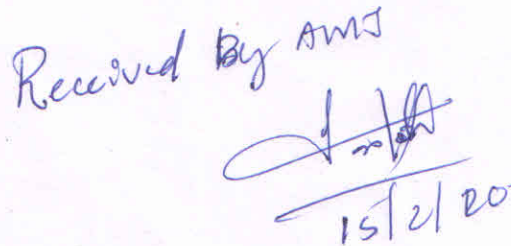 Received By AMJ
15/2/20